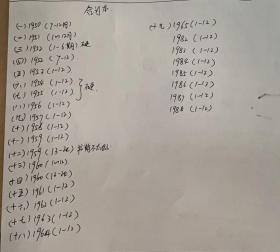 合订本
(一) 1950 (7-12月)
(二) 1951 (1-12月)
(三) 1952 (1-6期)
(四) 1952 (7-12)
(五) 1953 (1-12)
(六) 1954 (1-12)
(七) 1955 (1-12)
(八) 1956 (1-12)
(九) 1957 (1-12)
(十) 1958 (1-12)
(十一) 1959 (1-12)
(十二) 1959 (13-24)
(十三) 1960 (1-12)
(十四) 1960 (13-24)
(十五) 1961 (1-12)
(十六) 1962 (1-12)
(十七) 1963 (1-12)
(十八) 1964 (1-12)
(十九) 1965 (1-12)
1982 (1-12)
1983 (1-12)
1984 (1-12)
1985 (1-12)
1986 (1-12)
1987 (1-12)
1988 (1-12)